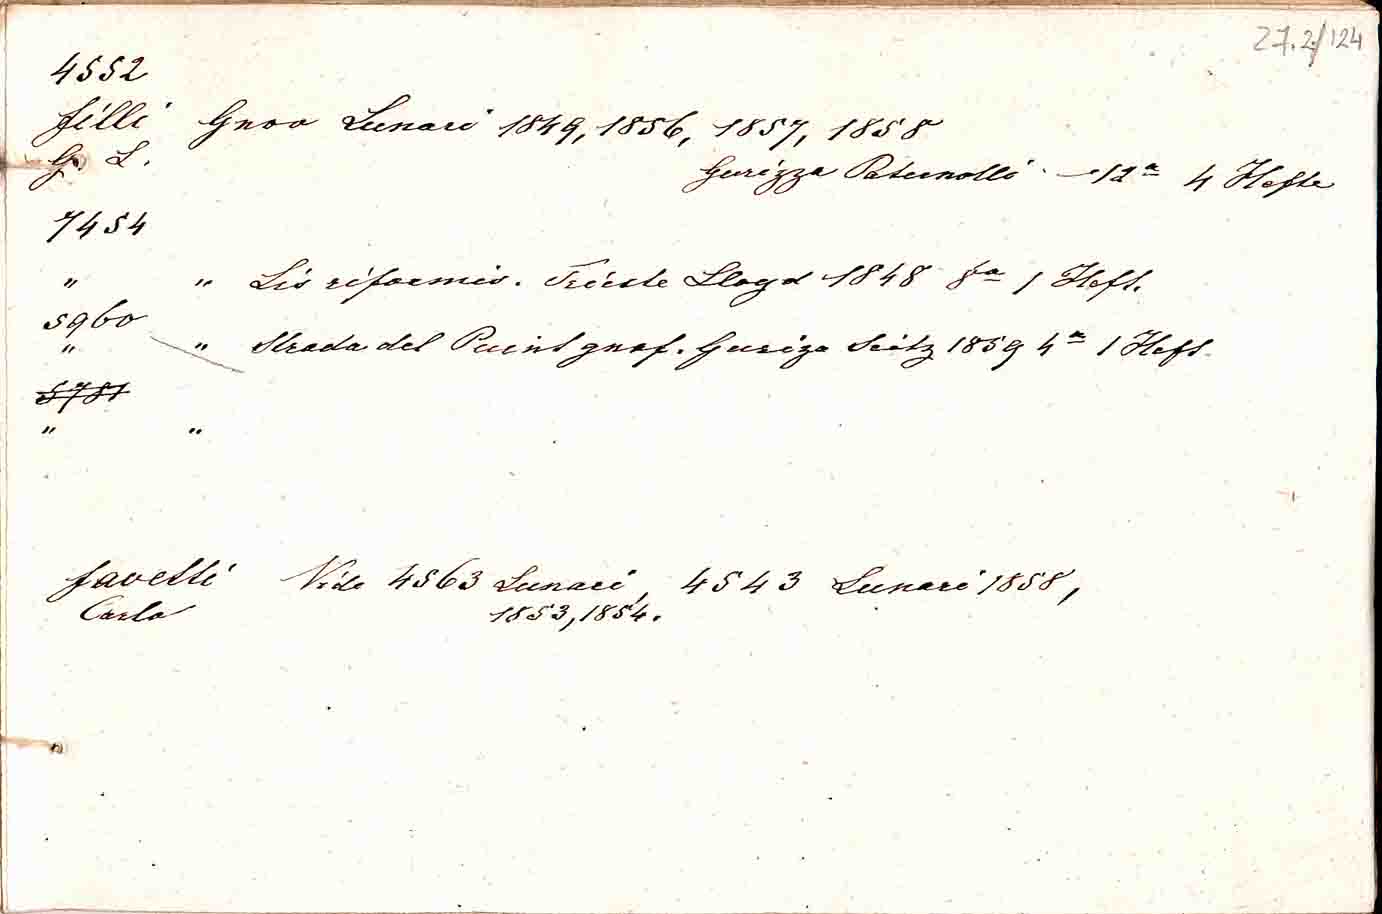 27.2/124
4552
Filli Gnov Lunari 1849, 1856, 1857, 1858
G. L.
Gurizza Paternolli - 12° 4 Hefte
7454
" " Lis riformis. Trieste Lloyd 1848 8° 1 Heft.
5960
" " Strada del Puint gnof. Guriza Seitz 1859 4° 1 Heft.
5781
" "
Favetti Vide 4563 Lunari, 4543 Lunari 1858,
Carlo 1853, 1854.